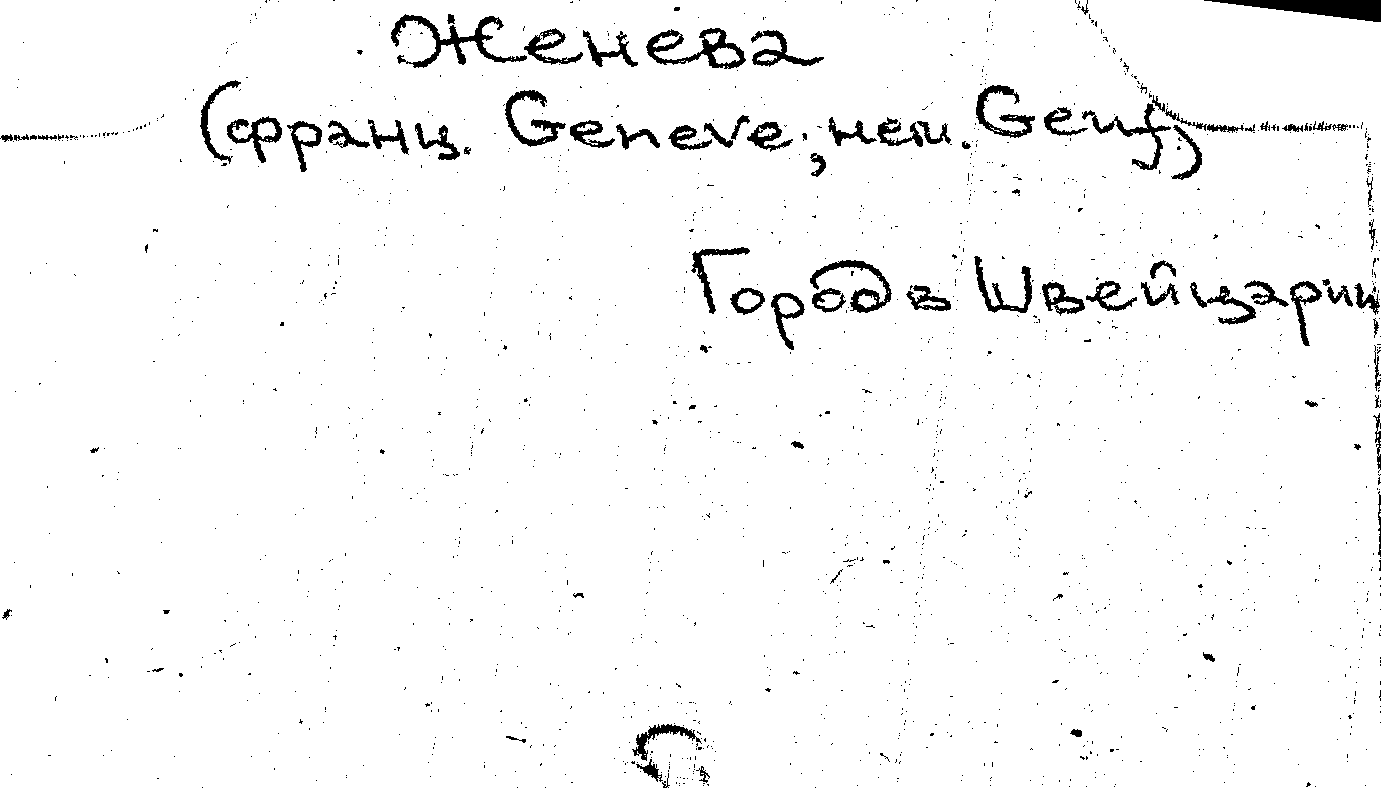 Женева
(франц. Geneve; нем. Genf)
Город в Швейцарии